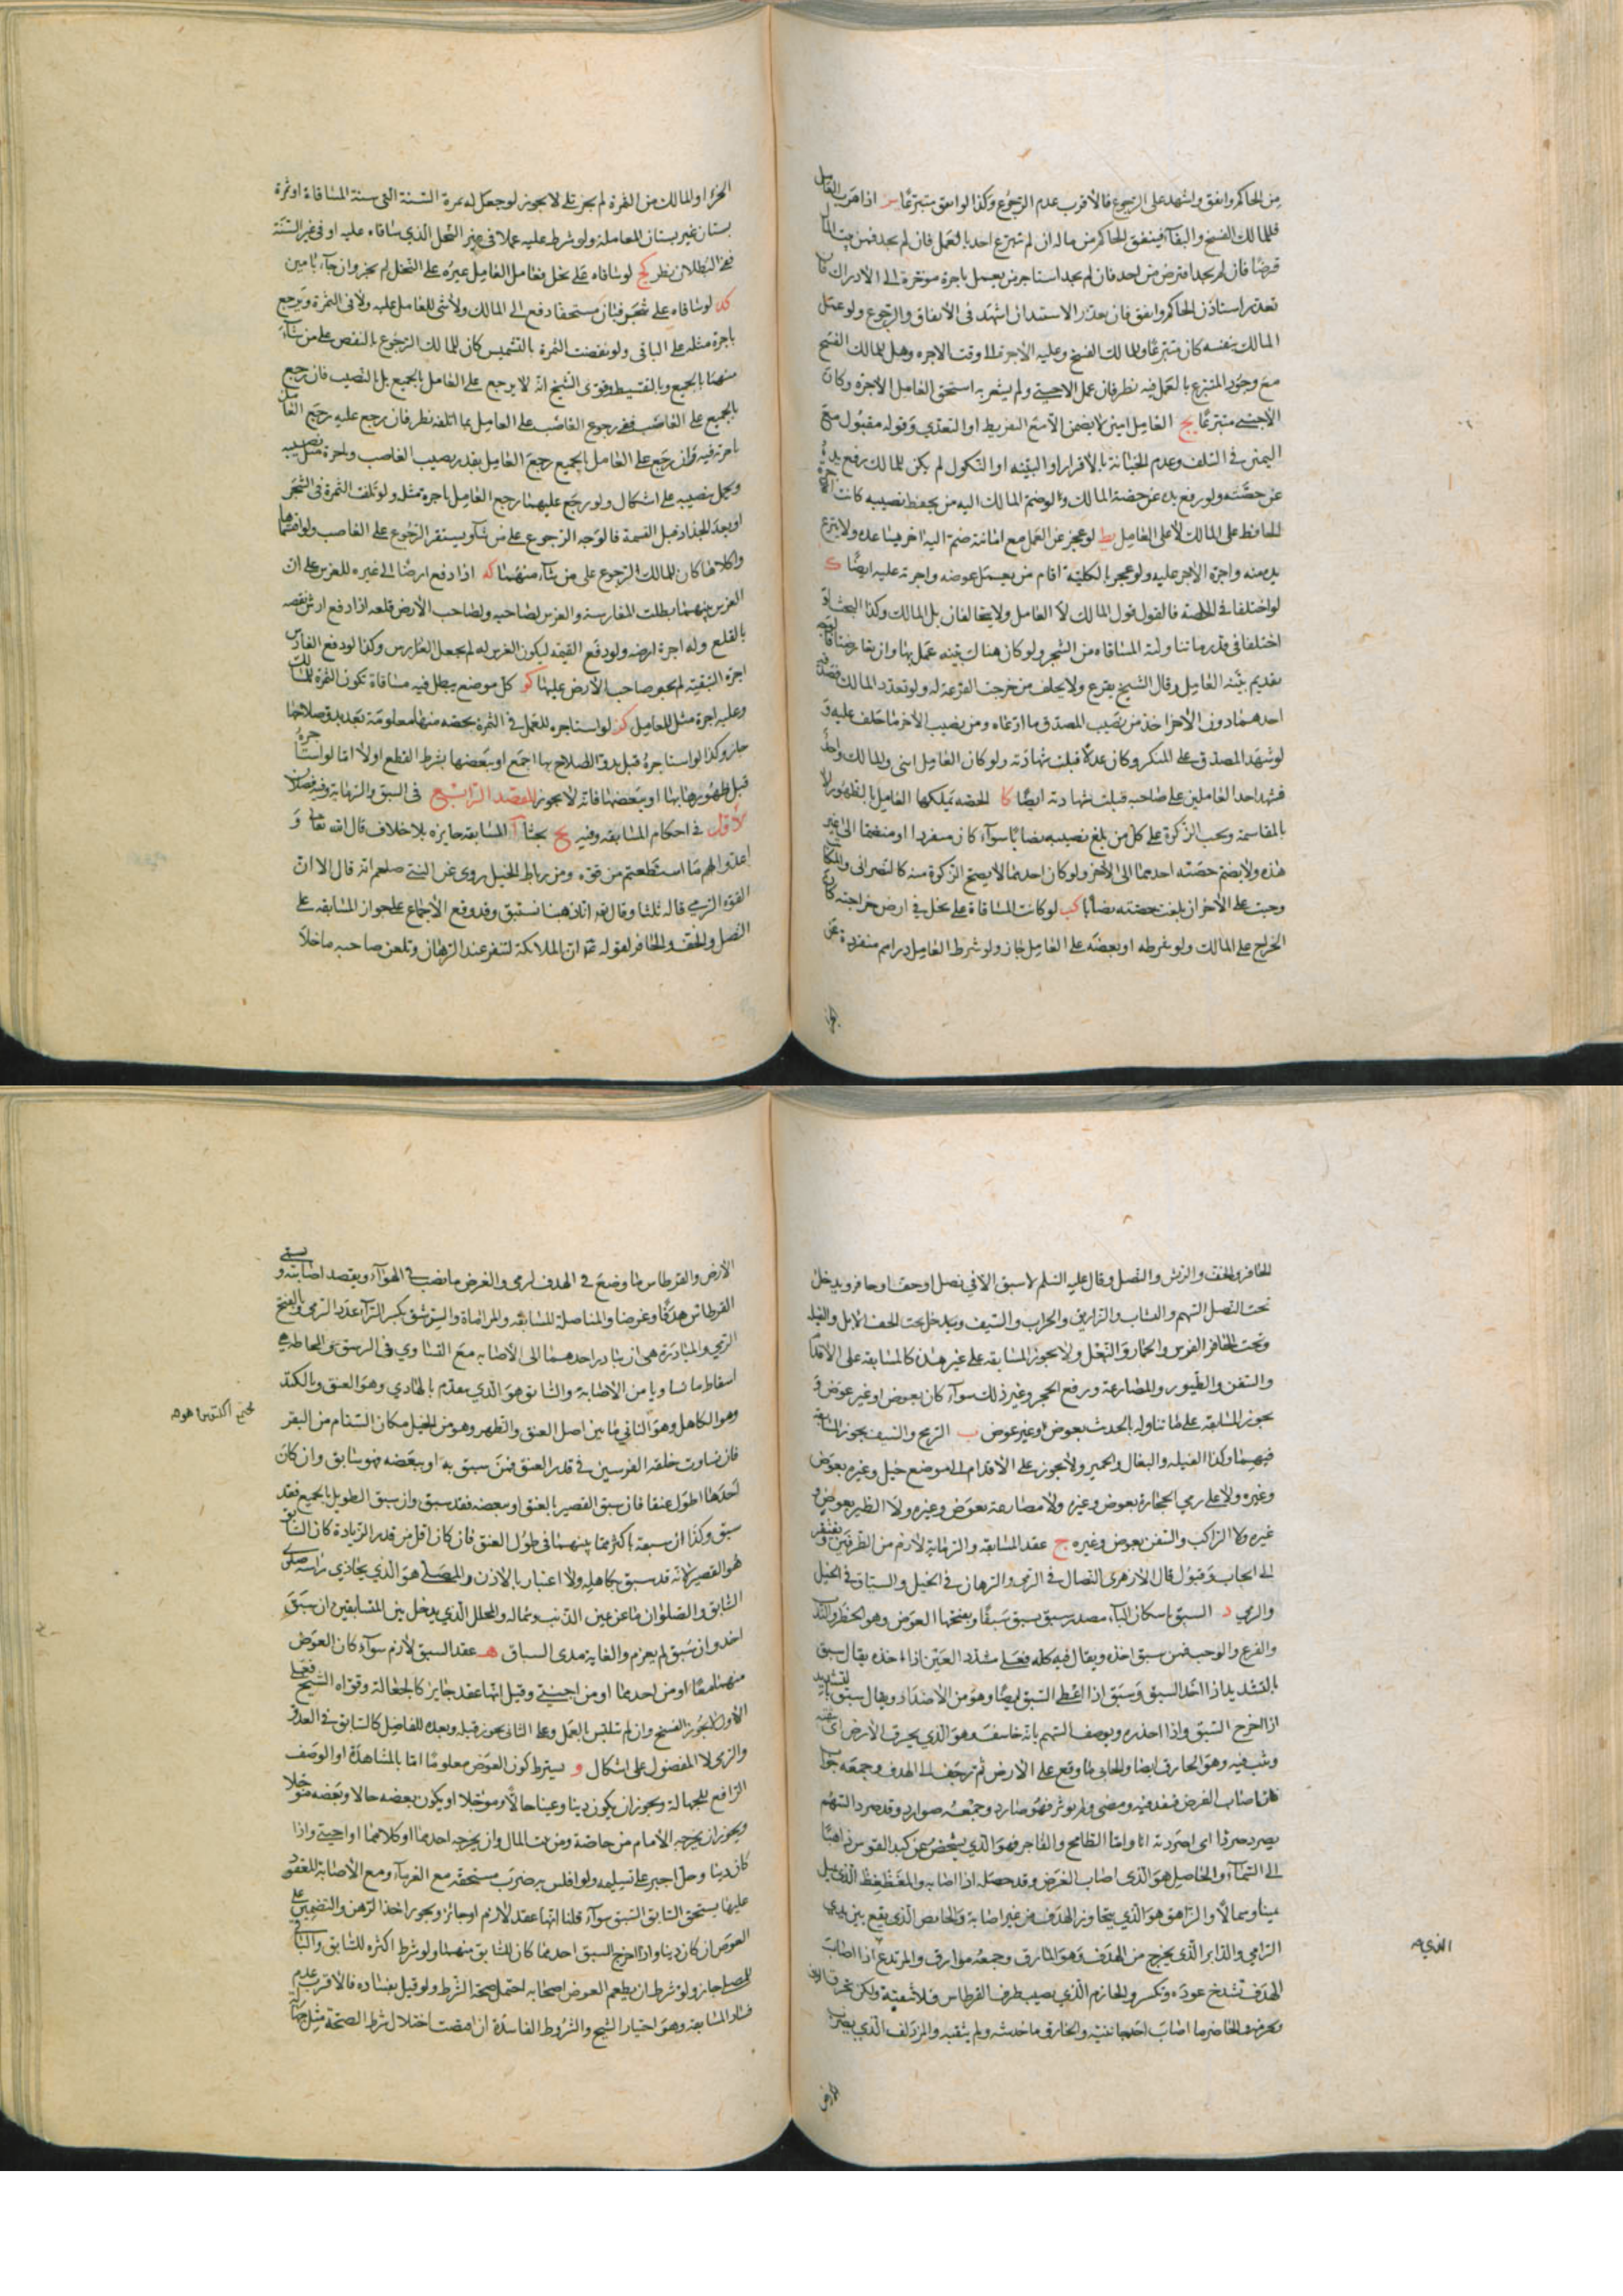 من الحاكم وانفق واشهد على الرجوع فالأقرب عدم الرجوع وكذا لو انفق متبرعًا اذا هرب العامل
فللمالك الفسخ والبقاء فينفق الحاكم من ماله ان لم يتبرع احد بالعمل فان لم يجد فمن بيت المال
قرضًا فان لم يجد اقترض من احد فان لم يجد استاجر من يعمل باجرة مؤخرة الى الادراك فان
تعذر استاذن الحاكم وانفق فان تعذر الاستيذان اشهد فى الانفاق والرجوع ولو عمل
المالك بنفسه كان متبرعًا وللمالك الفسخ وعليه الأجرة الى وقت الاجره وهل للمالك الفسخ
مع وجود المتبرع بالعمل فيه نظر فان عمل الاجنبى ولم يشعر به استحق العامل الأجرة وكان
الأجنبى متبرعًا يح العامل امين لا يضمن الا مع التفريط او التعدي وقوله مقبول مع
اليمين فى التلف وعدم الخيانة بالأقرار او البينه او النكول لم يكن للمالك رفع يده
عن حصته ولو رفع يده عن حصة المالك ولو ضم المالك اليه من يحفظ نصيبه كانت اجرة
الحافظ على المالك لا على العامل يط لو عجز عن العمل مع امانته ضم اليه اخر يساعده ولا ينزع
يده منه واجرة الأجير عليه ولو عجز بالكلية اقام من يعمل عوضه واجرته عليه ايضًا ك
لو اختلفا فى الحصة فالقول قول المالك لا العامل ولا يتحالفان بل المالك وكذا البحث لو
اختلفا فى قدر ما تناولته المساقاه من الشجر ولو كان هناك بينه عمل بها وان تعارضتا قال
بتقديم بينه العامل وقال الشيخ يقرع ولا يحلف من خرجت القرعة له ولو تعدد المالك فصدقه
احدهما دون الأخر اخذ من نصيب المصدق ما ادعاه ومن نصيب الأخر ما حلف عليه و
لو شهد المصدق على المنكر وكان عدلا قبلت شهادته ولو كان العامل اثنى والمالك واحدًا
فشهد احد العاملين على صاحبه قبلت شهادته ايضًا كا الحصه يملكها العامل بالظهور لا
بالمقاسمة ويجب الزكوة على كل من بلغ نصيبه نصابًا سوآء كان منفردا او منضما الى غير
هذه ولا يضم حصته احدهما الى الأخر ولو كان احدهما لا يصح الزكوة منه كالنصرانى والمكاتب
وجبت على الأخر ان بلغت حصته نصابًا كب لو كانت المساقاة على نخل فى ارض خراجية كان
الخراج على المالك ولو شرطه او بعضه على العامل جاز ولو شرط العامل دراهم منفردة عن
الجزء او المالك من الثمرة لم يجز تلے لا يجوز لو جعل له ثمرة السنة التى سنة المساقاة او ثمرة
بستان غير بستان المعاملة ولو شرط عليه عملا فى غير النخل الذي ساقاه عليه او فى غير السنة
ففى البطلان نظر كج لو ساقاه على نخل فعامل العامل غيره على النخل لم يجز وان جاء بامين
كد لو ساقاه على شجر فبان مستحقًا دفع الى المالك ولا شى للعامل عليه ولا فى الثمرة ويرجع
باجرة مثله على الباقى ولو نقصت الثمرة بالتشميس كان للمالك الرجوع بالنقص على من شاء
منهما بالجميع وبالتقسيط وقوى الشيخ انه لا يرجع على العامل بالجميع بل النصيب فان رجع
بالجميع على الغاصب ففى رجوع الغاصب على العامل بما اتلفه نظر فان رجع عليه رجع العامل
باجرته فيه وان رجع على العامل بالجميع رجع العامل بقدر نصيب الغاصب وباجرة مثله بنصيبه
ويحمل نصيبه على اشكال ولو رجع عليهما رجع العامل باجرة مثله ولو تلفت الثمرة فى الشجر
او بعد الجذاذ قبل القسمة فالوجه الرجوع على من شاء ويستقر الرجوع على الغاصب ولو اقتسماها
واكلاها كان للمالك الرجوع على من شاء منهما كه اذا دفع ارضًا الى غيره للغرس على ان
الغرس بينهما بطلت المغارسة والغرس لصاحبه ولصاحب الأرض قلعه اذا دفع ارش نقصه
بالقلع وله اجرة ارضه ولو دفع القيمه ليكون الغرس له لم يجعل الغارس وكذا لو دفع الغارس
اجرة التبقية لم يجبر صاحب الأرض عليها كو كل موضع يبطل فيه مساقاة تكون الثمرة للمالك
وعليه اجرة مثل للعامل كز لو استاجره للعمل فى الثمرة بحصه منها معلومة بعد بدو صلاحها
جاز وكذا لو استاجره قبل بدو الصلاح بها اجمع او ببعضها بشرط القطع اولًا اما لو استاجره
قبل ظهورها بها او ببعضها فانه لا يجوز المقصد الرابع فى السبق والرماية وفيه فصلان
الأول فى احكام المسابقه وفيه يح بحثا آ المسابقه جايزه بلا خلاف قال الله تعالى و
اعدوا لهم ما استطعتم من قوه ومن رباط الخيل روى عن النبى صلعم انه قال الا ان
القوه الرمي قاله ثلثا وقال تعالى انا ذهبنا نستبق وقد وقع الأجماع على جواز المسابقه على
النصل والخف والحافر لقوله ان الملائكة لتنفر عند الرهان وتلعن صاحبه ما خلا
الحافر والخف والريش والنصل وقال عليه السلم لا سبق الا فى نصل او خف او حافر ويدخل
تحت النصل السهم والنشاب والزاريق والحراب والسيف ويدخل تحت الخف الابل والفيلة
وتحت الحافر الفرس والحمار والبغل ولا يجوز المسابقه على غير هذه كالمسابقه على الاقدام
والسفن والطيور والمصارعة ورفع الحجر وغير ذلك سوآء كان بعوض او غير عوض و
يجوز المسابقه على ما تناوله بالحدث بعوض وغير عوض ب الريح والسيف يجوز المسابقة
فيهما وكذا الفيله والبغال والحمير ولا يجوز على الأقدام الى موضع جبل وغيره بعوض
وغيره ولا على رمي الحجارة بعوض وغيره ولا مصارعة بعوض وغيره ولا الطير بعوض و
غيره ولا المراكب والسفن بعوض وغيره ج عقد المسابقه والرماية لازم من الطرفين ويفتقر
الى ايجاب وقبول قال الأزهرى النضال فى الرمى والرهان فى الخيل والسباق فى الخيل
والرمي د السبق باسكان الباء مصدر سبق يسبق سبقًا وبفتحها العوض وهو الخطر والندب
والقرع والوجب فمن سبق اخذه ويقال فيه كله فعل مشدد العين اذا اخذه يقال سبق
بالتشديد اذا اخذ السبق وسبق اذا اعطى السبق ايضًا وهو من الأضداد ويقال سبق بالتشديد
اذا اخرج السبق واذا احذره ويوصف السهم بانه خاسف وهو الذي يخرق الأرض اى يثقبه
ويثب فيه وهو الخارق ايضا والحابى ما وقع على الارض ثم زحف الى الهدف وجمعه حواب
فان اصاب الغرض فنفذ فيه ومضى ولم يوثر فهو صارد وجمعه صوارد وقد صرد السهم
يصرد صردًا اى اصردته انا واما الطامح والفاخر فهو الذي يشخص عن كبد القوس ذاهبًا
الى السماء والحاصل هو الذى اصاب الغرض وقد حصله اذا اصابه والمغظغظ الذي يميل
يمينا وشمالًا والزاهق هو الذي يتجاوز الهدف من غير اصابة والحابض الذي يقع بين يدي
الرامي والدابر الذي يخرج من الهدف وهو المارق وجمعه موارق والمرتدع اذا اصاب
الهدف تشدخ عوده وتكسر والخازم الذي يصيب طرف القرطاس فلا يثقبه ولكن يخرق
والخاصر ما اصاب احد جانبيه والخارق ما خدشه ولم يثقبه والمزدلف الذي يضرب
الذي
الارض والقرطاس ما وضع فى الهدف ليرمى والغرض ما نصب فى الهوآء ويقصد اصابته ويسمى
القرطاس هدفًا وغرضًا والمناصلة المسابقه والمراماة والرشق بكسر الرآء عدد الرمى وبالفتح
الرمي والمبادرة هى ان يبادر احدهما الى الأصابه مع التساوي فى الرشق والمحاطة هى
اسقاط ما تساويا من الاصابة والسابق هو الذي يتقدم بالهادي وهو العنق وبالكتد
وهو الكاهل وهو الثاني ما بين اصل العنق والظهر وهو من الخيل مكان السنام من البقر
فان تساوت خلقة الفرسين فى قدر العنق فمن سبق به او ببعضه فهو سابق وان كان
احدهما اطول عنقا فان سبق القصير بالعنق او ببعضه فقد سبق وان سبق الطويل بالجميع فقد
سبق وكذا ان سبقه باكثر مما بينهما فى طول العنق فان كان اقل من قدر الزيادة كان السابق
هو القصير لانه قد سبق بكاهله ولا اعتبار بالاذن والمصلى هو الذي يحاذي راسه صلوى
السابق والصلوان ما عن يمين الذنب وشماله والمحلل الذي يدخل بين المتسابقين ان سبق
اخذ وان سبق لم يغرم والغاية مدى السباق هـ عقد السبق لازم سوآء كان العوض
منهما معًا او من احدهما او من اجنبى وقيل انها عقد جايز كالجعالة وقواه الشيخ فعلى
الأول لا يجوز الفسخ وان لم يتلبس بالعمل وعلى الثانى يجوز قبله وبعده للفاضل كالسابق فى العدو
والرمى لا المفضول على اشكال و يشترط كون العوض معلومًا اما بالمشاهدة او الوصف
الرافع للجهالة ويجوز ان يكون دينا وعينا حالًا ومؤجلا او يكون بعضه حالا وبعضه مؤجلا
ويجوز ان يخرجه الأمام من خاصة ومن بيت المال وان يخرجه احدهما او كلاهما او اجنبى واذا
كان دينا وحل اجبر على تسليمه ولو افلس به ضرب مستحقه مع الغرماء ومع الأصابة المعقود
عليها يستحق السابق السبق سوآء قلنا انها عقد لازم او جائز ويجوز اخذ الرهن والتضمين على
العوض ان كان دينا واذا اخرج السبق احدهما كان للسابق منهما ولو شرط اكثره للسابق والباقى
للمصلى جاز ولو شرط ان يطعم العوض اصحابه احتمل صحة الشرط ولو قيل بفساده فالأقرب عدم
فساد المسابقه وهو اختيار الشيخ والشروط الفاسدة ان اقتضت اختلال شرط الصحة مثل جهالة